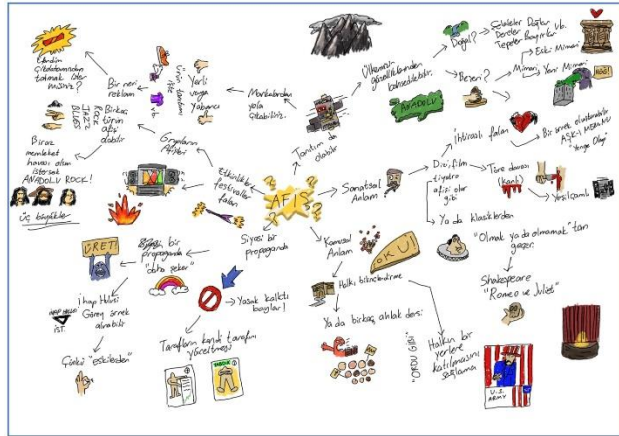 AFİŞ
Tanıtım da
olabilir
Markalardan
yola
çıkabiliriz.
Yerli
veya
Yabancı
Ürün tanıtımı
işte
Bir nevi
reklam
tatmak ister
misiniz?
Ülkemizin
güzelliklerinden
bahsedilebilir.
ANADOLU
Doğal?
Şelaleler Dağlar
Dereler
Tepeler
vb.
Beşeri?
Mimari
Eski Mimari
Yeni Mimari
Sanatsal
Anlam
Dizi, film
tiyatro
afişi olur
gibi
İhtiraslı falan
Bir örnek
AŞK-I MEMNU
"Yenge Olayı"
Töre davası
(kanlı)
Yeşilçamlı
Ya da klasiklerden
"Olmak ya da olmamak" tan
geçer.
Shakespeare
"Romeo ve Juliet"
Kamusal
Anlam
OKU!
Halkı bilinçlendirme
Ya da birkaç ahlak dersi
Halkın bir
yerlere
katılmasını
sağlama
U.S.
ARMY
Siyasi bir
propaganda
Yasak kalktı
baylar!
Tarafların kendi tarafını
yüceltmesi
bir
propaganda
"daha şeker"
ÜRET!
İhap Hulusi
Görey örnek
alınabilir
İST.
Çünkü "eskilerden"
Etkinlikler
festivaller
falan
Grupların
Afişleri
Birkaç
türün
afişi
olabilir
ROCK
JAZZ
BLUES
Biraz
memleket
havası alan
istersek
ANADOLU ROCK!
üç büyükler